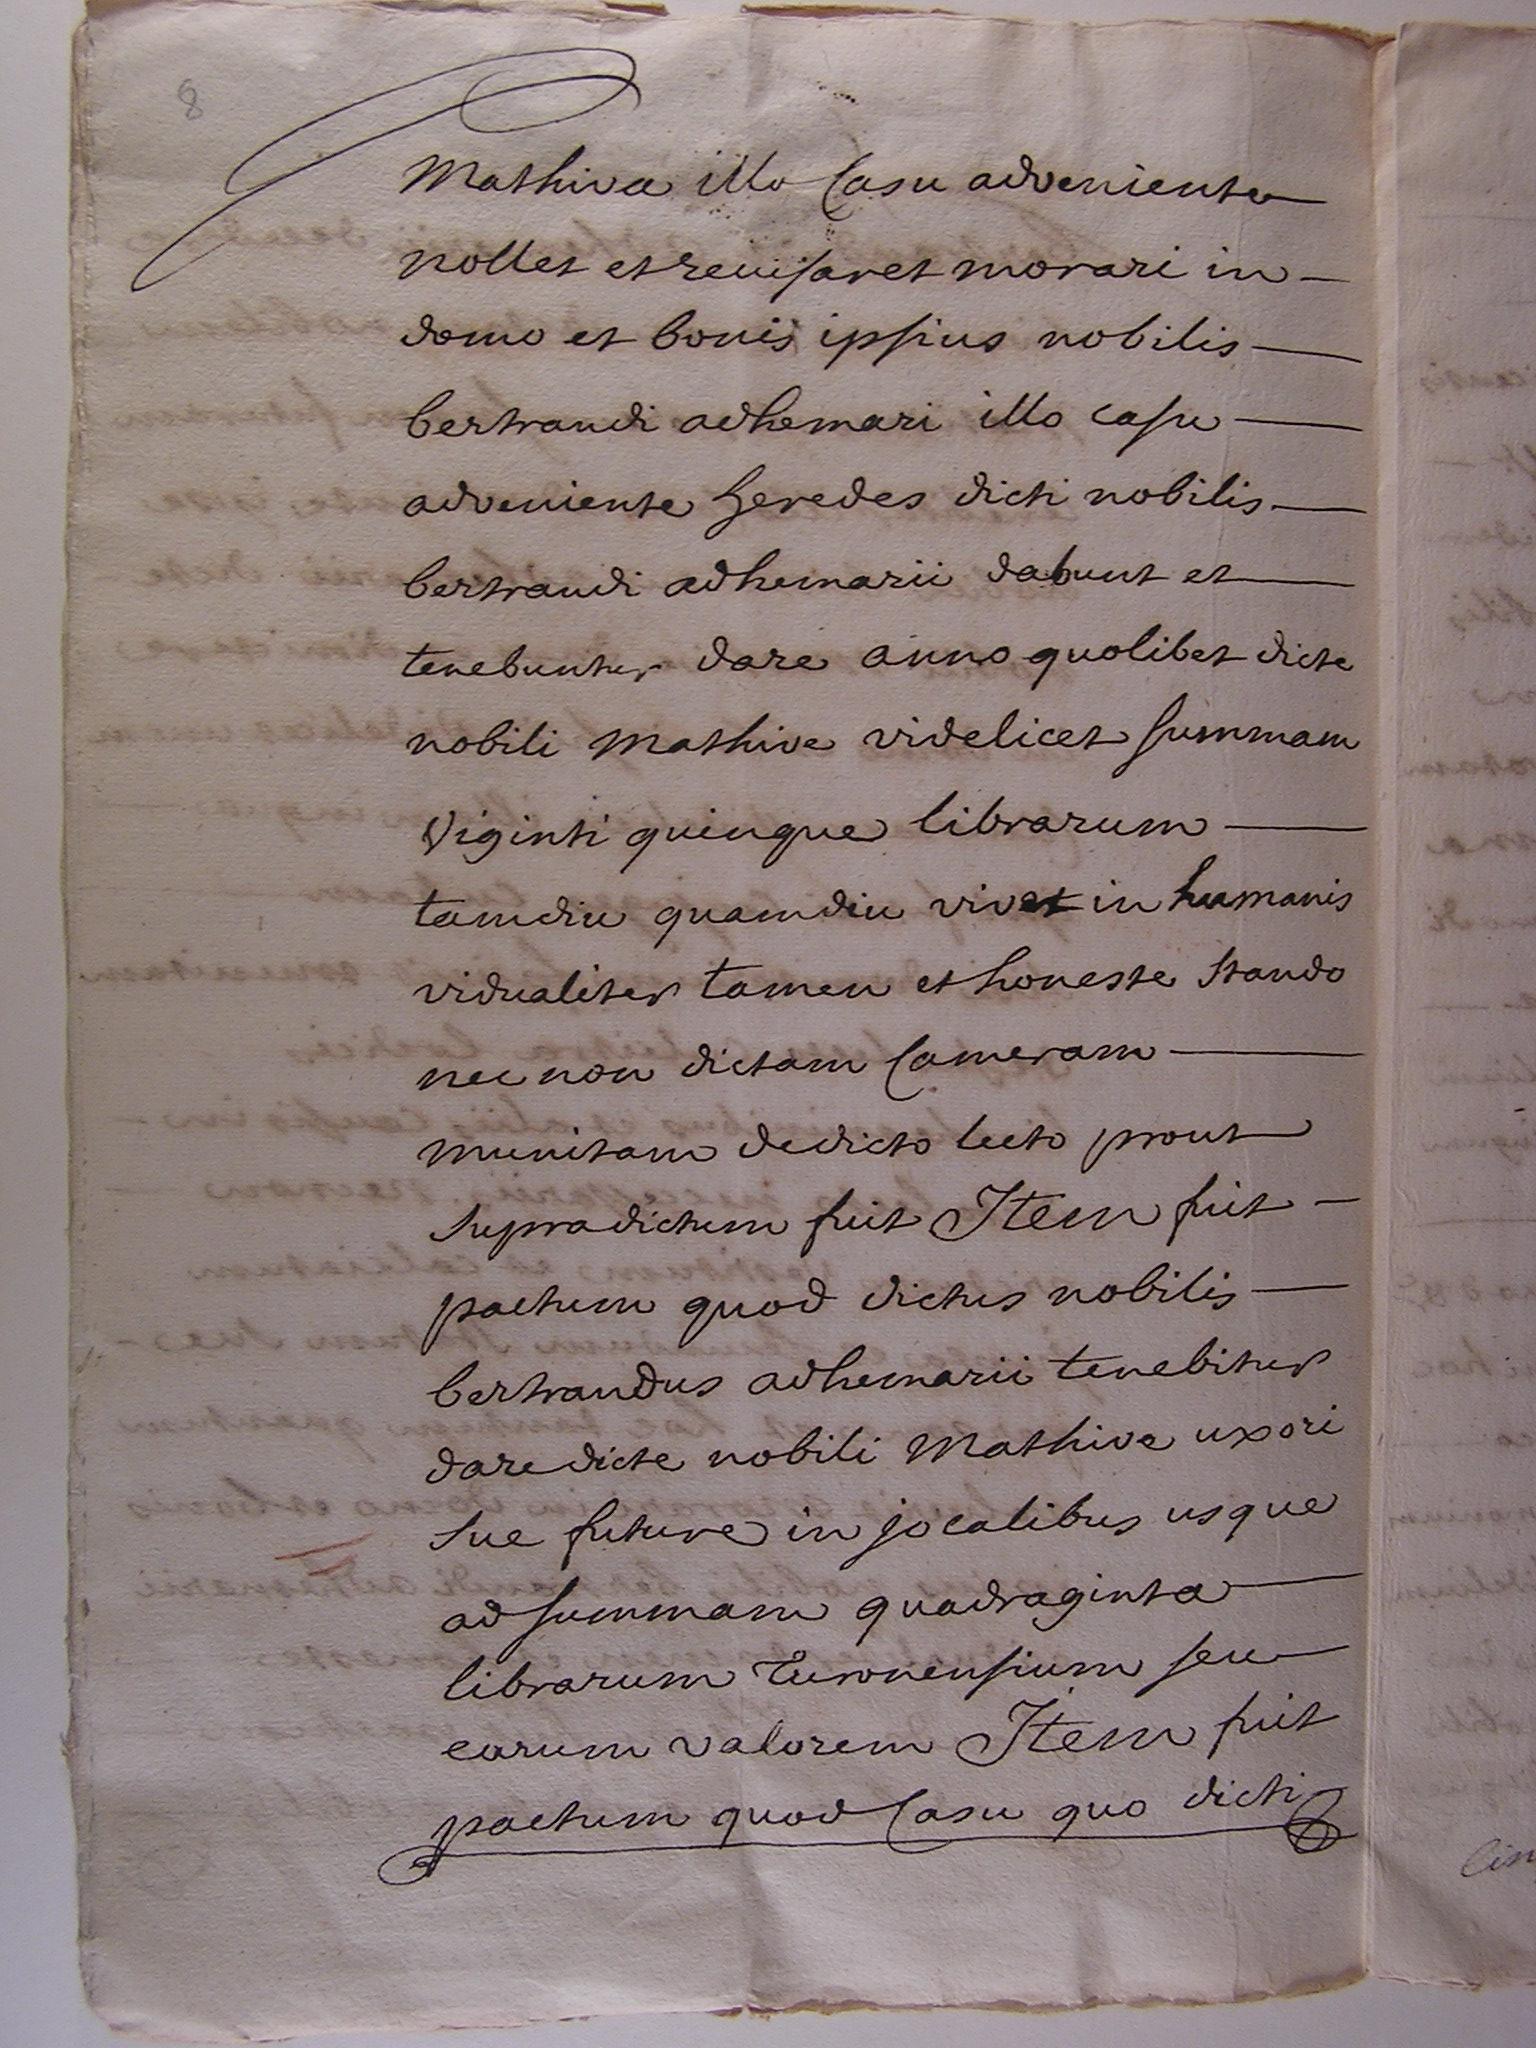 8
Mathiva illo Casu adveniente
nollet et recusaret morari in
domo et bonis ipsius nobilis
bertrandi adhemari illo casu
adveniente heredes dicti nobilis
bertrandi adhemarii dabunt et
tenebuntur dare anno quolibet dicte
nobili Mathive videlicet summam
viginti quinque librarum
tamdiu quamdiu vivet in humanis
vidualiter tamen et honeste stando
nec non dictam Cameram
munitam de dicto lecto prout
supradictum fuit Item fuit
pactum quod dictus nobilis
bertrandus adhemarii tenebitur
dare dicte nobili Mathive uxori
sue future in jocalibus usque
ad summam quadraginta
librarum turonensium seu
earum valorem Item fuit
pactum quod Casu quo dicti